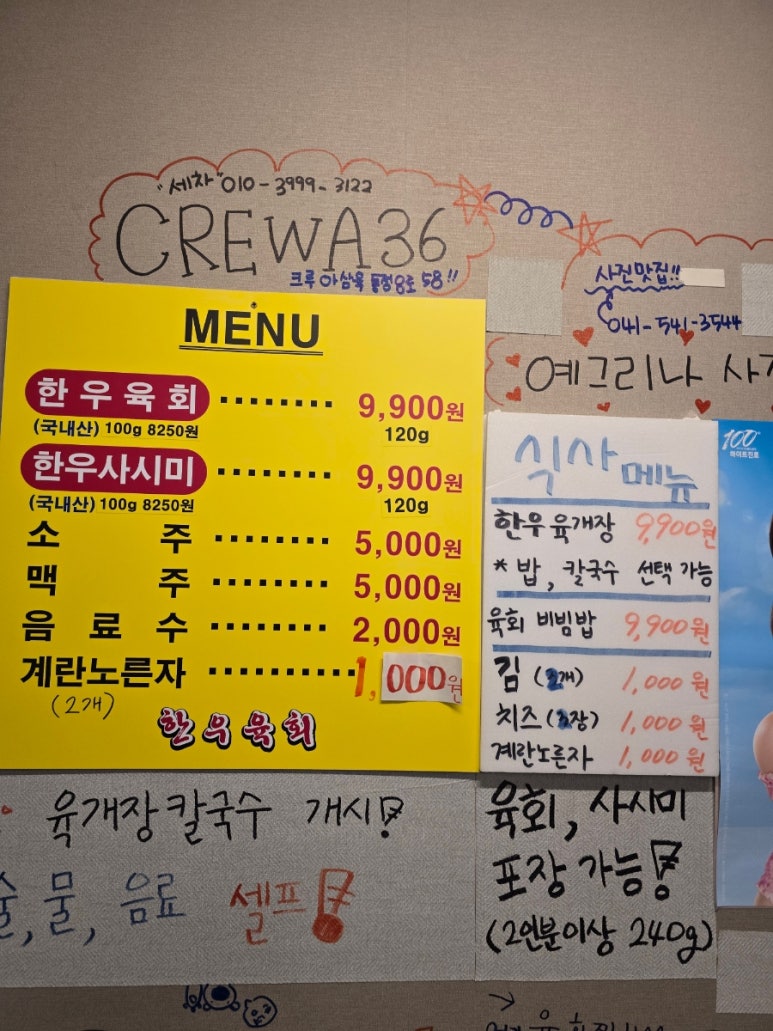 "세차" 010-3999-3122
CREWA36
크루 아삼육 통정8로 58!!
사진맛집!!
041-541-3544
예그리나 사
MENU
한우육회 ········ 9,900원
(국내산) 100g 8250원 120g
한우사시미 ········ 9,900원
(국내산) 100g 8250원 120g
소 주 ········ 5,000원
맥 주 ········ 5,000원
음 료 수 ········ 2,000원
계란노른자 ·········· 1,000원
(2개)
한우육회
식사 메뉴
한우 육개장 9,900원
* 밥, 칼국수 선택 가능
육회 비빔밥 9,900원
김 (2개) 1,000원
치즈 (3장) 1,000원
계란노른자 1,000원
100
하이트진로
육개장 칼국수 개시!
술, 물, 음료 셀프!
육회, 사시미
포장 가능!
(2인분이상 240g)